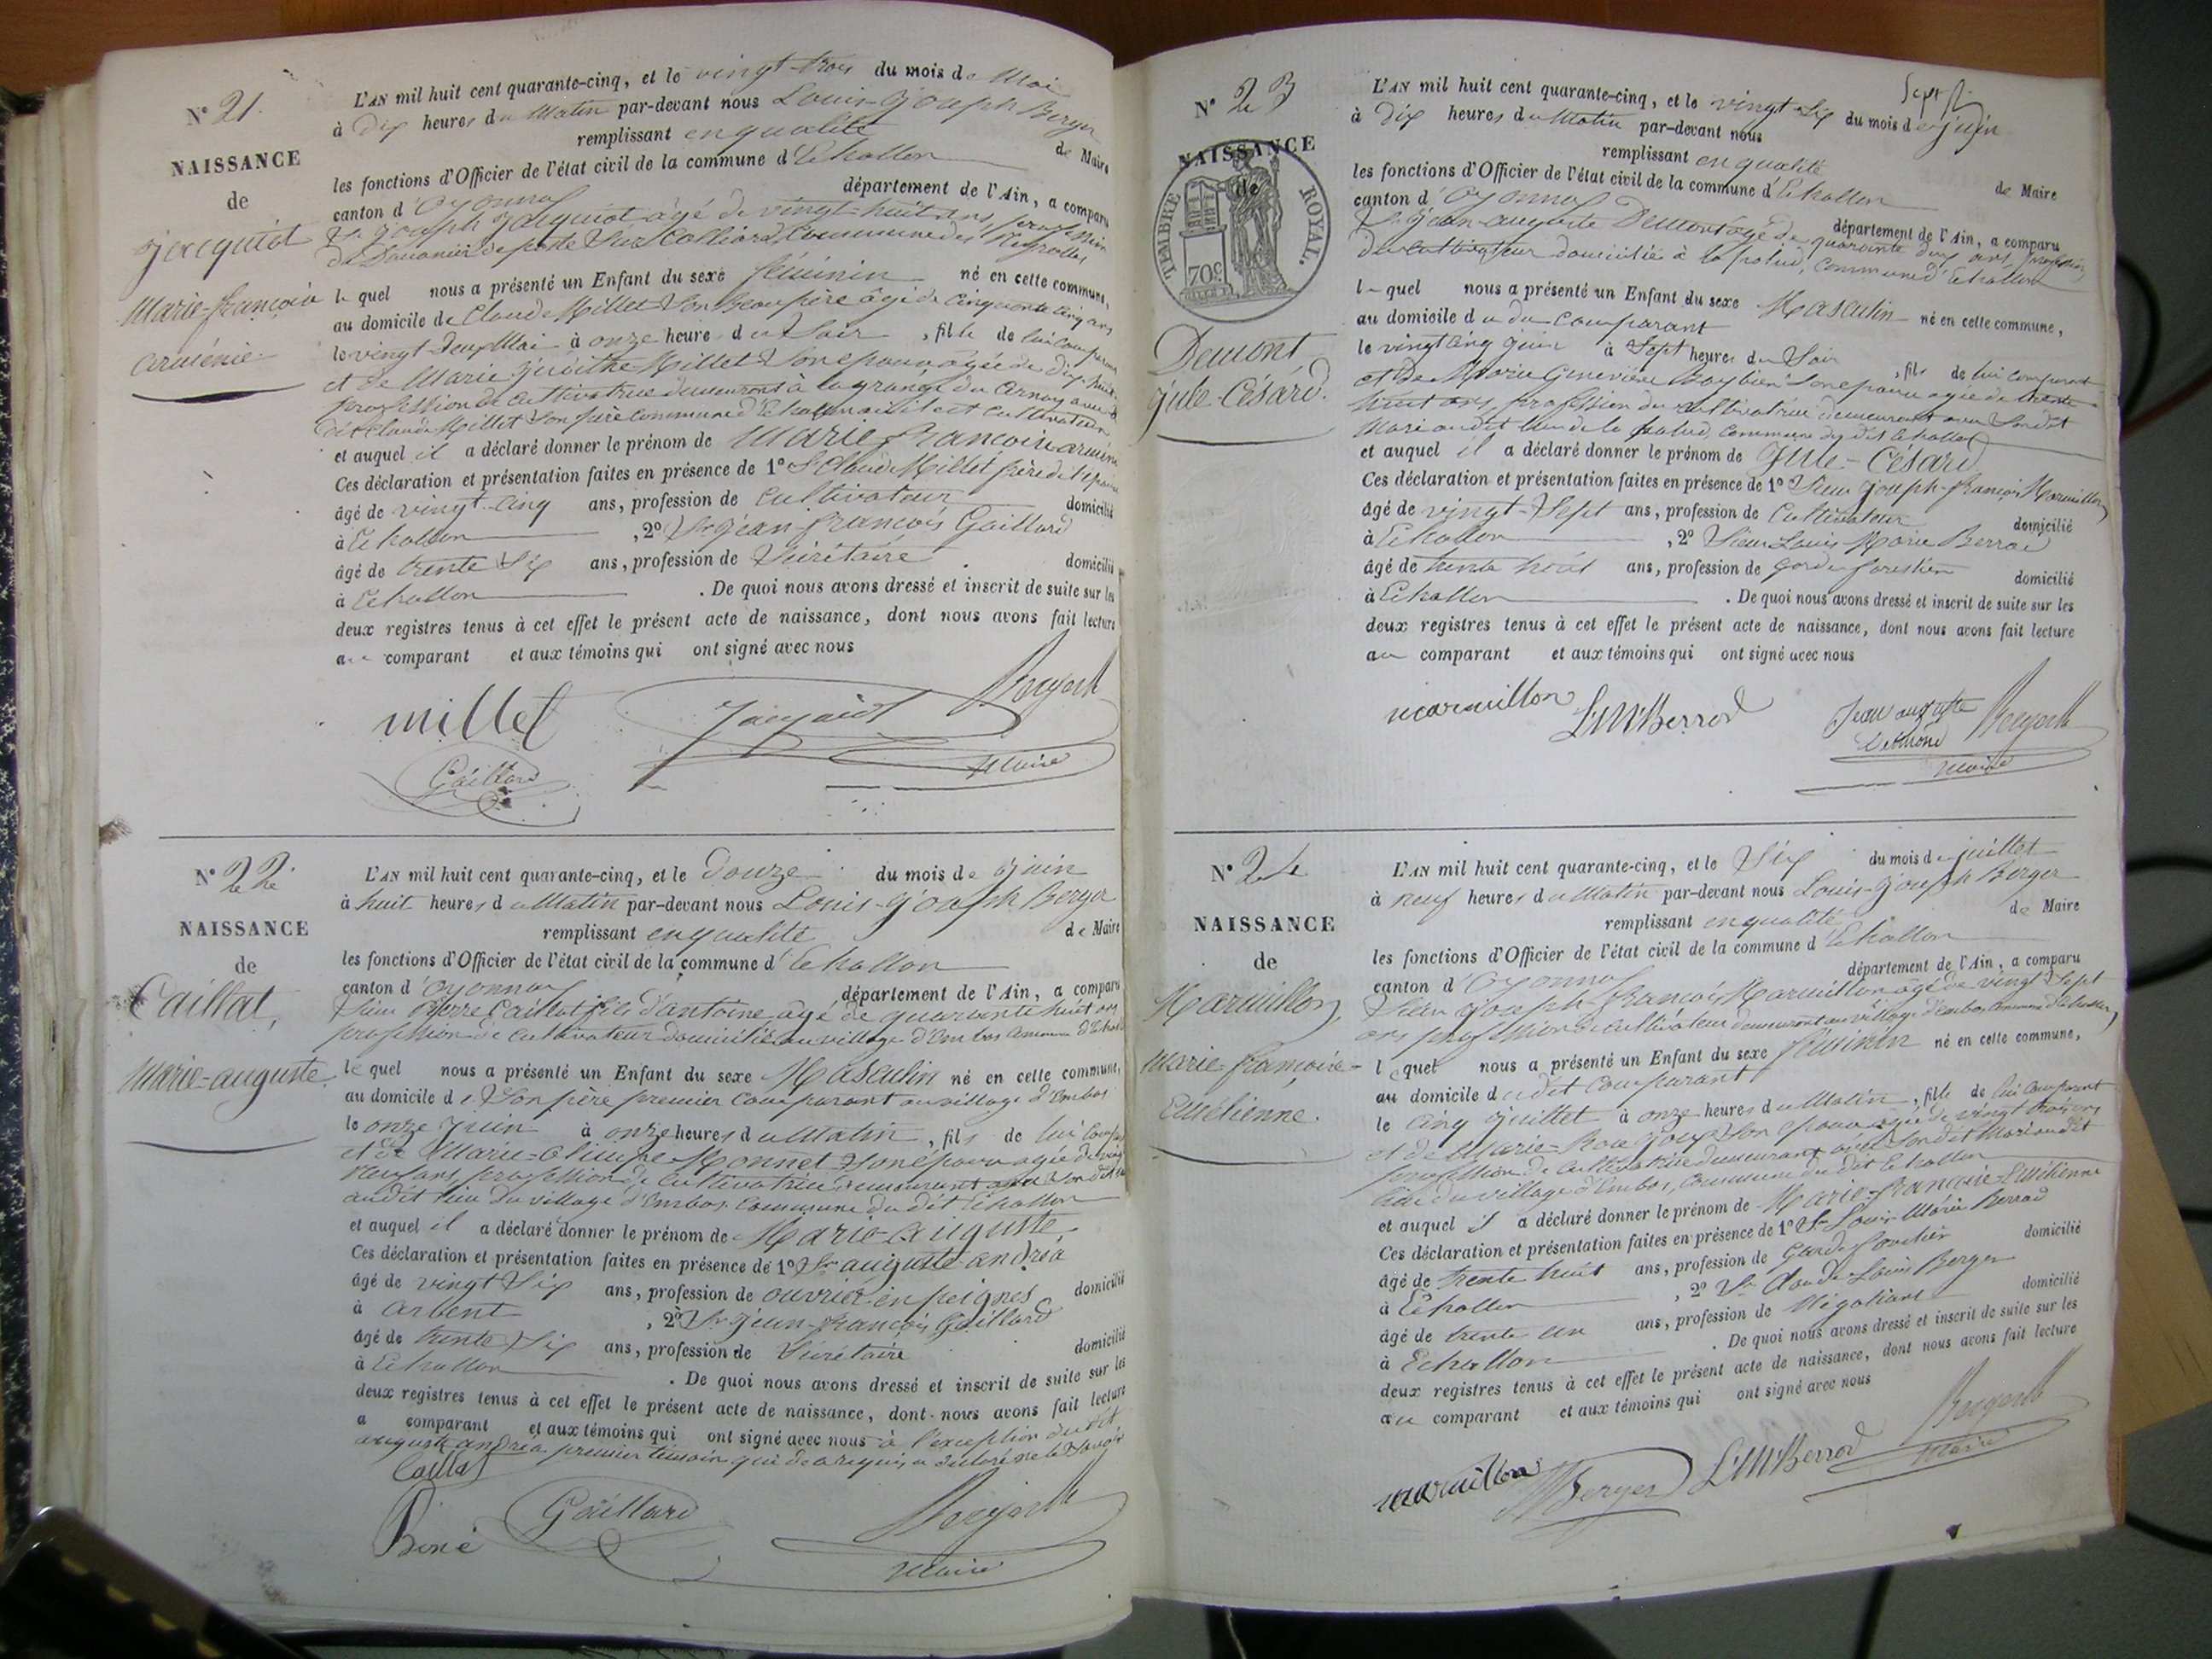 N° 21.
NAISSANCE
de
Jacquiot
Marie-françoise
arménie
L'AN mil huit cent quarante-cinq, et le vingt-trois du mois de Mai
à Dix heures du Matin par-devant nous Louis-Joseph Berger
remplissant en qualité de Maire
les fonctions d'Officier de l'état civil de la commune d'Echallon
canton d'Oyonnax département de l'Ain, a comparu
Sr Joseph Jacquiot âgé de vingt-huit ans, profession
de Douanier de poste Sur Colliard, Commune des Neyrolles
lequel nous a présenté un Enfant du sexe féminin né en cette commune,
au domicile de Claude Millet Son Beau père âgé de Cinquante cinq ans
le vingt-deux Mai à onze heures du Soir, fille de lui comparant
et de Marie Judithe Millet Son épouse âgée de dix huit
profession de cultivatrice demeurant à la grange du avec
dit Claude Millet Son père Commune d'Echallon où il est cultivateur
et auquel il a déclaré donner le prénom de Marie françoise arménie
Ces déclaration et présentation faites en présence de 1° Sr Claude Millet frère de l'épouse
âgé de vingt-cinq ans, profession de cultivateur domicilié
à Echallon, 2° Sr Jean-françois Gaillard
âgé de trente Six ans, profession de Sécrétaire domicilié
à Echallon. De quoi nous avons dressé et inscrit de suite sur les
deux registres tenus à cet effet le présent acte de naissance, dont nous avons fait lecture
au comparant et aux témoins qui ont signé avec nous
millet Jacquiot Berger
Gaillard Maire
N° 22
NAISSANCE
de
Caillat,
Marie-auguste
L'AN mil huit cent quarante-cinq, et le Douze du mois de Juin
à huit heures du Matin par-devant nous Louis-Joseph Berger
remplissant en qualité de Maire
les fonctions d'Officier de l'état civil de la commune d'Echallon
canton d'Oyonnax département de l'Ain, a comparu
Sieur Pierre Caillat fils d'antoine âgé de quarante huit ans
profession de cultivateur domicilié au village d'Embos Commune d'Echallon
lequel nous a présenté un Enfant du sexe Masculin né en cette commune,
au domicile de Son père premier comparant au village d'Embos
le onze Juin à onze heures du Matin, fils de lui comparant
et de Marie-Olimpe Monnet Son épouse âgée de vingt
neuf ans, profession de Cultivatrice demeurant avec Son dit
audit lieu du village d'Embos Commune du dit Echallon
et auquel il a déclaré donner le prénom de Marie-Auguste,
Ces déclaration et présentation faites en présence de 1° Sr auguste andréa
âgé de vingt Six ans, profession de ouvrier en peignes domicilié
à arbent, 2° Sr Jean-françois Gaillard
âgé de trente Six ans, profession de Sécrétaire domicilié
à Echallon. De quoi nous avons dressé et inscrit de suite sur les
deux registres tenus à cet effet le présent acte de naissance, dont nous avons fait lecture
a comparant et aux témoins qui ont signé avec nous à l'exception du dit
auguste andréa premier témoin qui de ce requis a déclaré ne le Savoir
Caillat
Gaillard Berger
Maire
N° 23
NAISSANCE
de
TIMBRE ROYAL.
70c
Demont
Jule-Césard.
L'AN mil huit cent quarante-cinq, et le vingt-Six du mois de Juin
à dix heures du Matin par-devant nous
remplissant en qualité de Maire
les fonctions d'Officier de l'état civil de la commune d'Echallon
canton d'Oyonnax département de l'Ain, a comparu
Sr Jean-auguste Demont âgé de quarante deux ans, profession
de cultivateur domicilié à la palud, commune d'Echallon
lequel nous a présenté un Enfant du sexe Masculin né en cette commune,
au domicile du du comparant
le vingt cinq Juin à Sept heures du Soir, fils de lui comparant
et de Marie Geneviève Son épouse âgée de trente
huit ans, profession de cultivatrice demeurant avec Son dit
Mari audit lieu de la palud, Commune du dit Echallon
et auquel il a déclaré donner le prénom de Jule-Césard
Ces déclaration et présentation faites en présence de 1° Sieur Joseph-françois Marmillon
âgé de vingt-Sept ans, profession de Cultivateur domicilié
à Echallon, 2° Sieur Louis Marie Berrod
âgé de trente huit ans, profession de garde forestier domicilié
à Echallon. De quoi nous avons dressé et inscrit de suite sur les
deux registres tenus à cet effet le présent acte de naissance, dont nous avons fait lecture
au comparant et aux témoins qui ont signé avec nous
marmillon L'M'Berrod Jean auguste Demond Berger
Maire
N° 24
NAISSANCE
de
Marmillon,
Marie-françoise-
Emélienne.
L'AN mil huit cent quarante-cinq, et le Six du mois de juillet
à neuf heures du Matin par-devant nous Louis-Joseph Berger
remplissant en qualité de Maire
les fonctions d'Officier de l'état civil de la commune d'Echallon
canton d'Oyonnax département de l'Ain, a comparu
Sieur Joseph-françois Marmillon âgé de vingt Sept
ans profession de Cultivateur demeurant au village d'Embos Commune d'Echallon
lequel nous a présenté un Enfant du sexe féminin né en cette commune,
au domicile du dit Comparant
le cinq Juillet à onze heures du Matin, fille de lui comparant
et de Marie-Rose Joux Son épouse âgée de vingt trois ans
profession de cultivatrice demeurant avec Son dit Mari audit
lieu du village d'Embos, Commune du dit Echallon
et auquel il a déclaré donner le prénom de Marie-françoise-Emélienne
Ces déclaration et présentation faites en présence de 1° Sr Louis-Marie Berrod
âgé de trente huit ans, profession de Garde forestier domicilié
à Echallon, 2° Sr Claude Louis Berger
âgé de trente un ans, profession de Négociant domicilié
à Echallon. De quoi nous avons dressé et inscrit de suite sur les
deux registres tenus à cet effet le présent acte de naissance, dont nous avons fait lecture
au comparant et aux témoins qui ont signé avec nous
marmillon Berger L'M'Berrod Berger
Maire